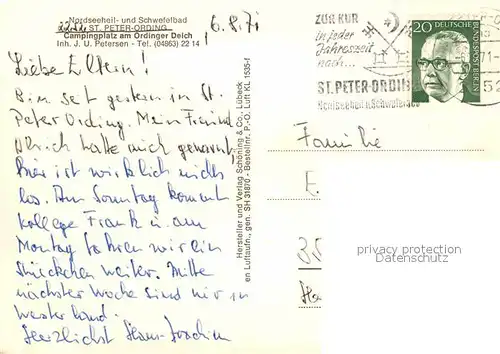 Nordseeheil- und Schwefelbad
2252 ST. PETER-ORDING
Campingplatz am Ordinger Deich
Inh. J. U. Petersen - Tel. (04863) 22 14
6.8.71
Liebe Eltern!
Bin seit gestern in St.
Peter Ording. Mein Freund
Ulrich hatte mich gewarnt,
hier ist wirklich nichts
los. Am Sonntag kommt
Kollege Frank u. am
Montag fahren wir ein
Stückchen weiter. Mitte
nächster Woche sind wir in
Westerland.
Herzlichst Hans-Joachim
Hersteller und Verlag Schöning & Co., Lübeck
en Luftaufn., gen. SH 318/70 - Bestellnr. P.-O. Luft KL 1535-f
ZUR KUR
in jeder
Jahreszeit
nach...
ST. PETER-ORDING
Nordseeheil u. Schwefelbad
20
DEUTSCHE BUNDESPOST BERLIN
Familie
E
35
Ha
privacy protection
AnsichtskartenHandel.com